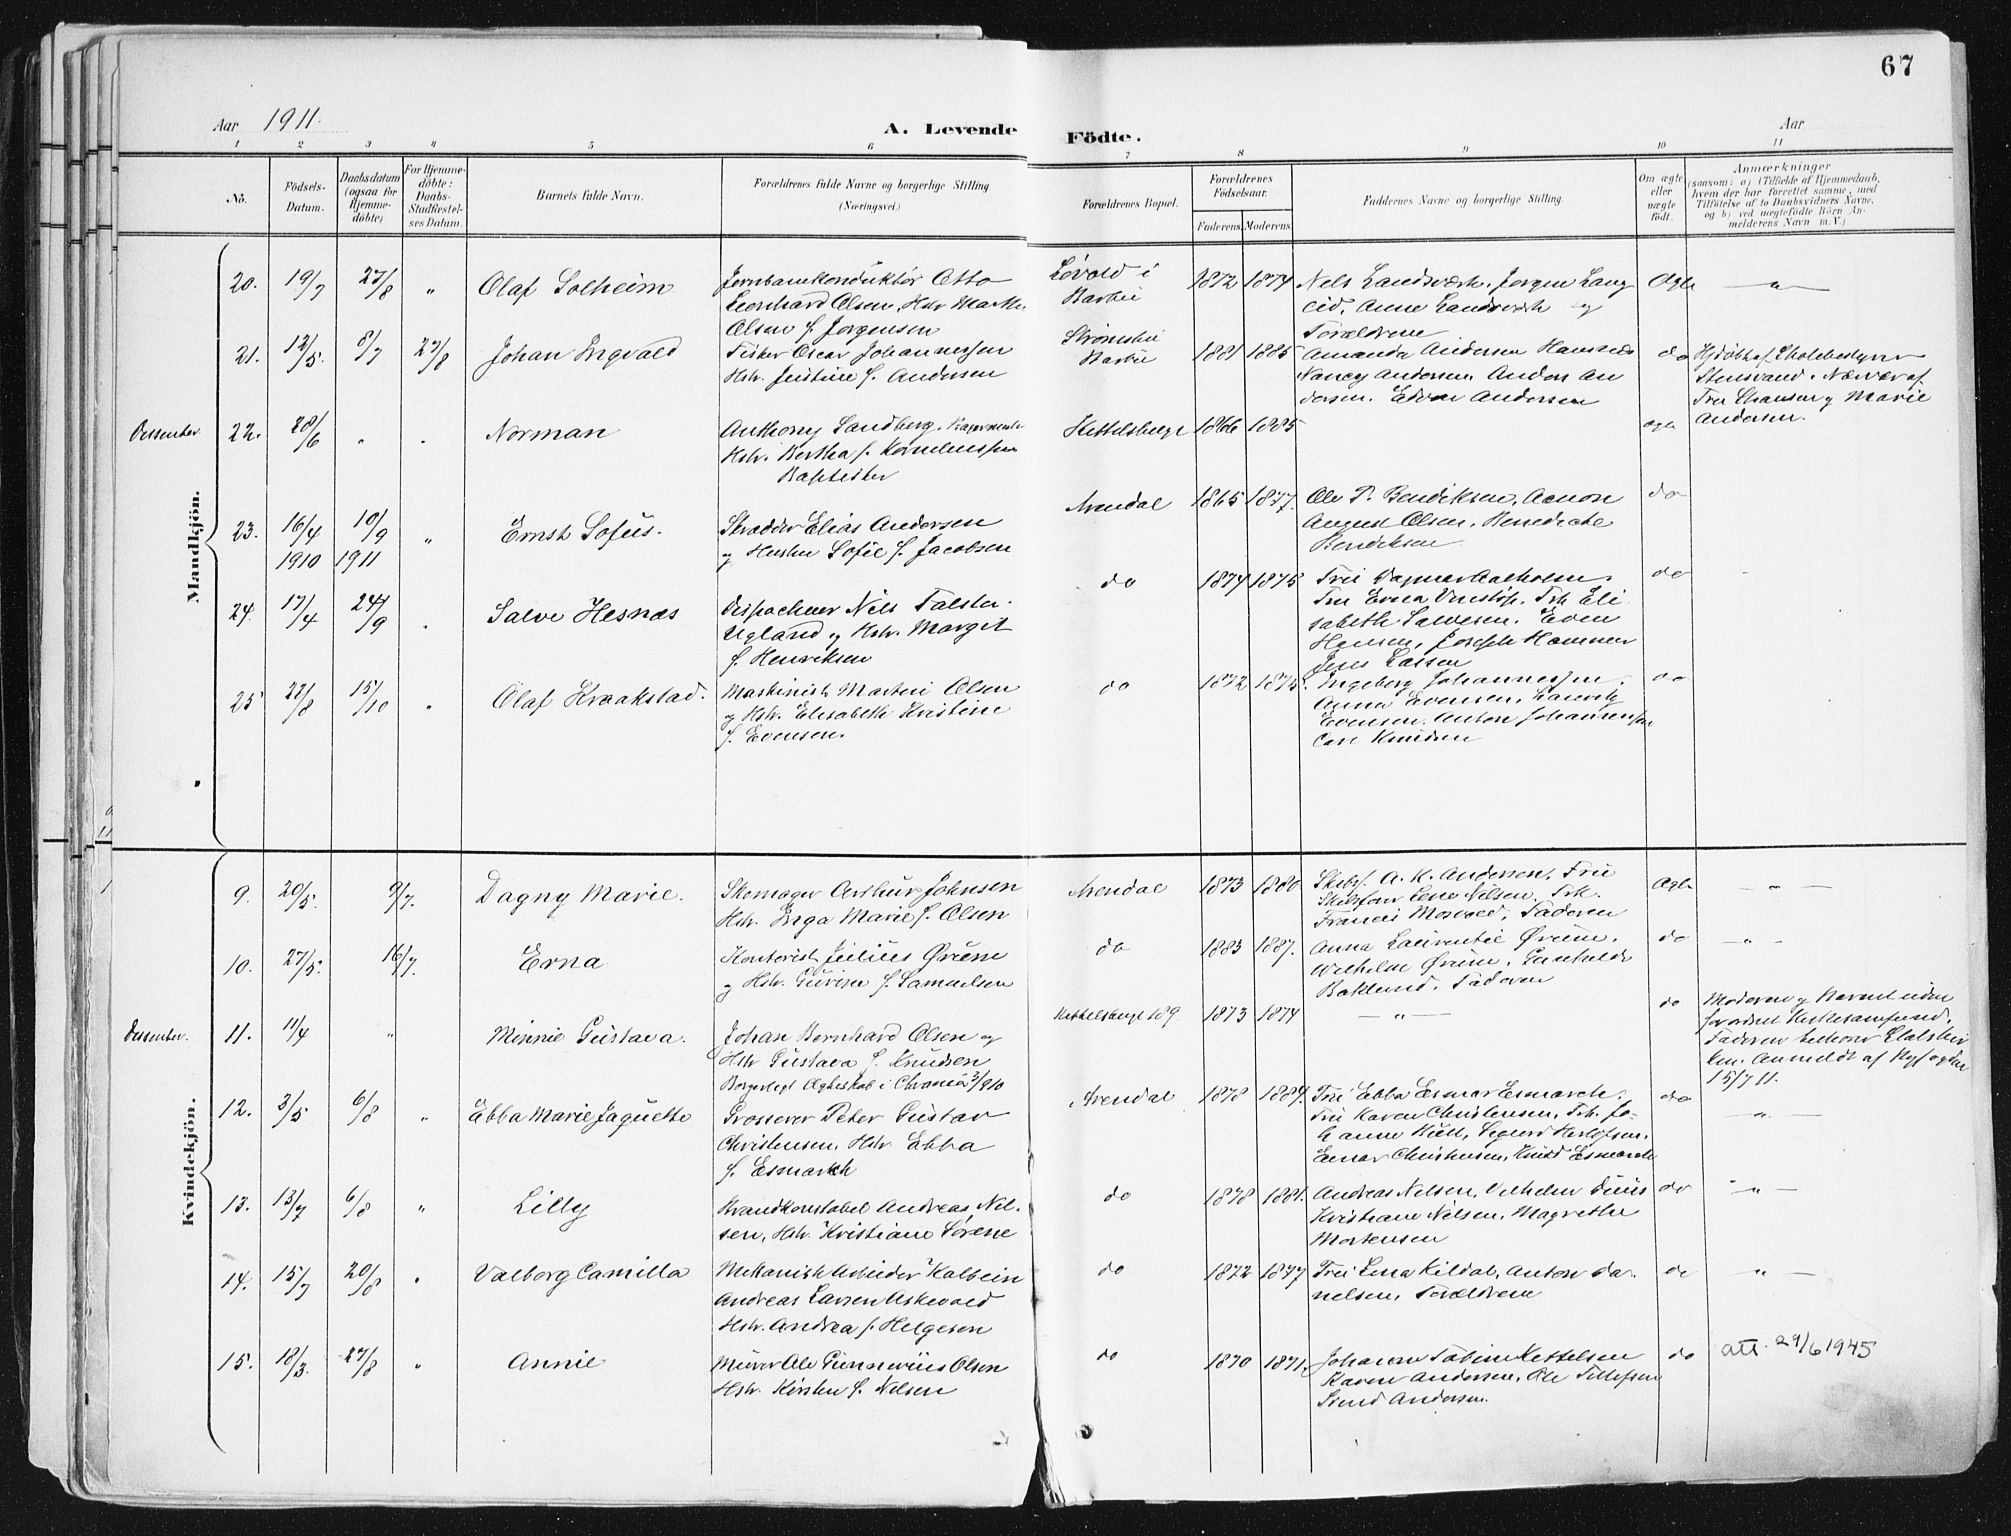 67
Aar 1911.
A. Levende Födte.
Aar
1 2 3 4 5 6 7 8 9 10 11
No.
Födsels-Datum.
Daabsdatum (ogsaa for Hjemme-döbte)
For Hjemme-döbte: Daabs-Stadfæstel-ses Datum.
Barnets fulde Navn.
Forældrenes fulde Navne og borgerlige Stilling (Næringsvei.)
Forældrenes Bopæl.
Forældrenes Födselsaar.
Faderens. Moderens.
Faddernes Navne og borgerlige Stilling.
Om ægte eller uægte födt.
Anmærkninger
(saasom: a) i Tilfælde af Hjemmedaab,
hvem der har forrettet samme, med
Tilföielse af to Daabsvidners Navne,
og b) ved uægtefödte Börn An-
melderens Navn m. V.)
Mandkjön.
20. 19/7 27/8 " Olaf Solheim
Jernbanekonduktør Otto
Leonhard Olsen, Hstr. Marthe
Olsen f. Jørgensen
Barbu 1872 1874
Nels Landsværk, Jørgen Lang
eid, Anne Landsværk og
Forældrene
Ægte — " —
21. 12/5. 8/7 27/8 Johan Ingvald
Fisker Oscar Johannessen
Hstr. Justine f. Andersen
Strømsbu
Barbu 1881 1885
Amanda Andersen
Nancy Andersen, Anders An
dersen, Andersen
do
Stensvand.
og Marie
Andersen.
Dissenter. 22. 28/6 " " Norman
Anthony Sandberg.
Hstr. Bertha f. Korneliussen
Baptister
Kittelsbugt 1866 1885 ægte
23. 16/4 1910 10/9 1911 " Ernst Sofus.
Skrædder Elias Andersen
og Hustru Sofie f. Jacobsen
Arendal 1865 1877.
Ole P. Bendiksen,
August Olsen, Benedicte
Bendiksen
do
24. 17/4 24/9 " Salve Hesnæs
Dispacheur Nils Falster
Ugland og Hstr. Margit
f. Henriksen
do 1874 1875
Fru Dagmar Aalholm.
Fru Erna Frk. Eli
sabeth Salvesen, Even
Hansen, Joseph Hammer
Jens Larsen
do
25 27/8 15/10 " Olaf Kraakstad.
Maskinist Martin Olsen
og Hstr. Elisabeth Kristine
f. Evensen.
do 1872 1875.
Ingeborg Johannessen,
Anna Evensen,
Evensen. Anton Johannessen
Carl Knudsen
do
Kvindekjön.
9. 20/5. 9/7. Dagny Marie.
Skomager Arthur Johnsen
Hstr. Inga Marie f. Olsen
Arendal 1873 1880
Skibsf. A. K. Andersen, Frue
Lene Nilsen, Frk.
Faderen
Ægte — " —
10. 27/5. 16/7. Erna
Kontorist Julius Øvrum
og Hstr. Guvine f. Samuelsen
do 1883 1887.
Anna Laurentie Øvrum,
Wilhelm Øvrum, Gunhilde
Baklund, Faderen
do — " —
Dissenter. 11. 11/4 " Minnie Gustava.
Johan Bernhard Olsen og
Hstr Gustava f. Knudsen
Borgerligt Ægteskab i Chrania 3/910
Kittelsbugt 189 1873 1874 — " — do
Moderen og Barnet uden
for ordnet Kirkesamfund,
Faderen tilhører Statskir
ken. Anmeldt af
15/7 11.
12. 3/5 6/8 " Ebba Marie Jaquette
Grosserer Peter Gustav
Christensen, Hstr. Ebba
f. Esmarch
Arendal 1878 1884.
Fru Ebba Esmarch,
Fru Karen Christensen, Frk. Jo-
hanne Sigurd Herlofsen,
Einar Christensen, Knud Esmarch
do — " —
13. 13/7 6/8 " Lilly
Brandkonstabel Andreas Nil-
sen, Hstr. Kristiane Sørene
do 1878 1881.
Andreas Nilsen, Vilhelm Duus
Kristiane Nilsen, Magrethe
Mortensen
do — " —
14. 15/7 20/8 " Valborg Camilla
Mekanisk Arbeider Kalbein
Andreas Larsen Askevold
Hstr. Andrea f. Helgesen
do 1872 1877
Fru Lina Kildal, Anton Da-
nelsen, Forældrene
do — " —
15. 18/3 27/8 " Annie
Murer Ole Gunnerius Olsen
Hstr. Kirsten f. Nilsen
do 1870 1871.
Johanne Tobine Kettelsen
Karen Andersen, Ole Tellefsen
Svend Andersen.
do att. 29/6 1945